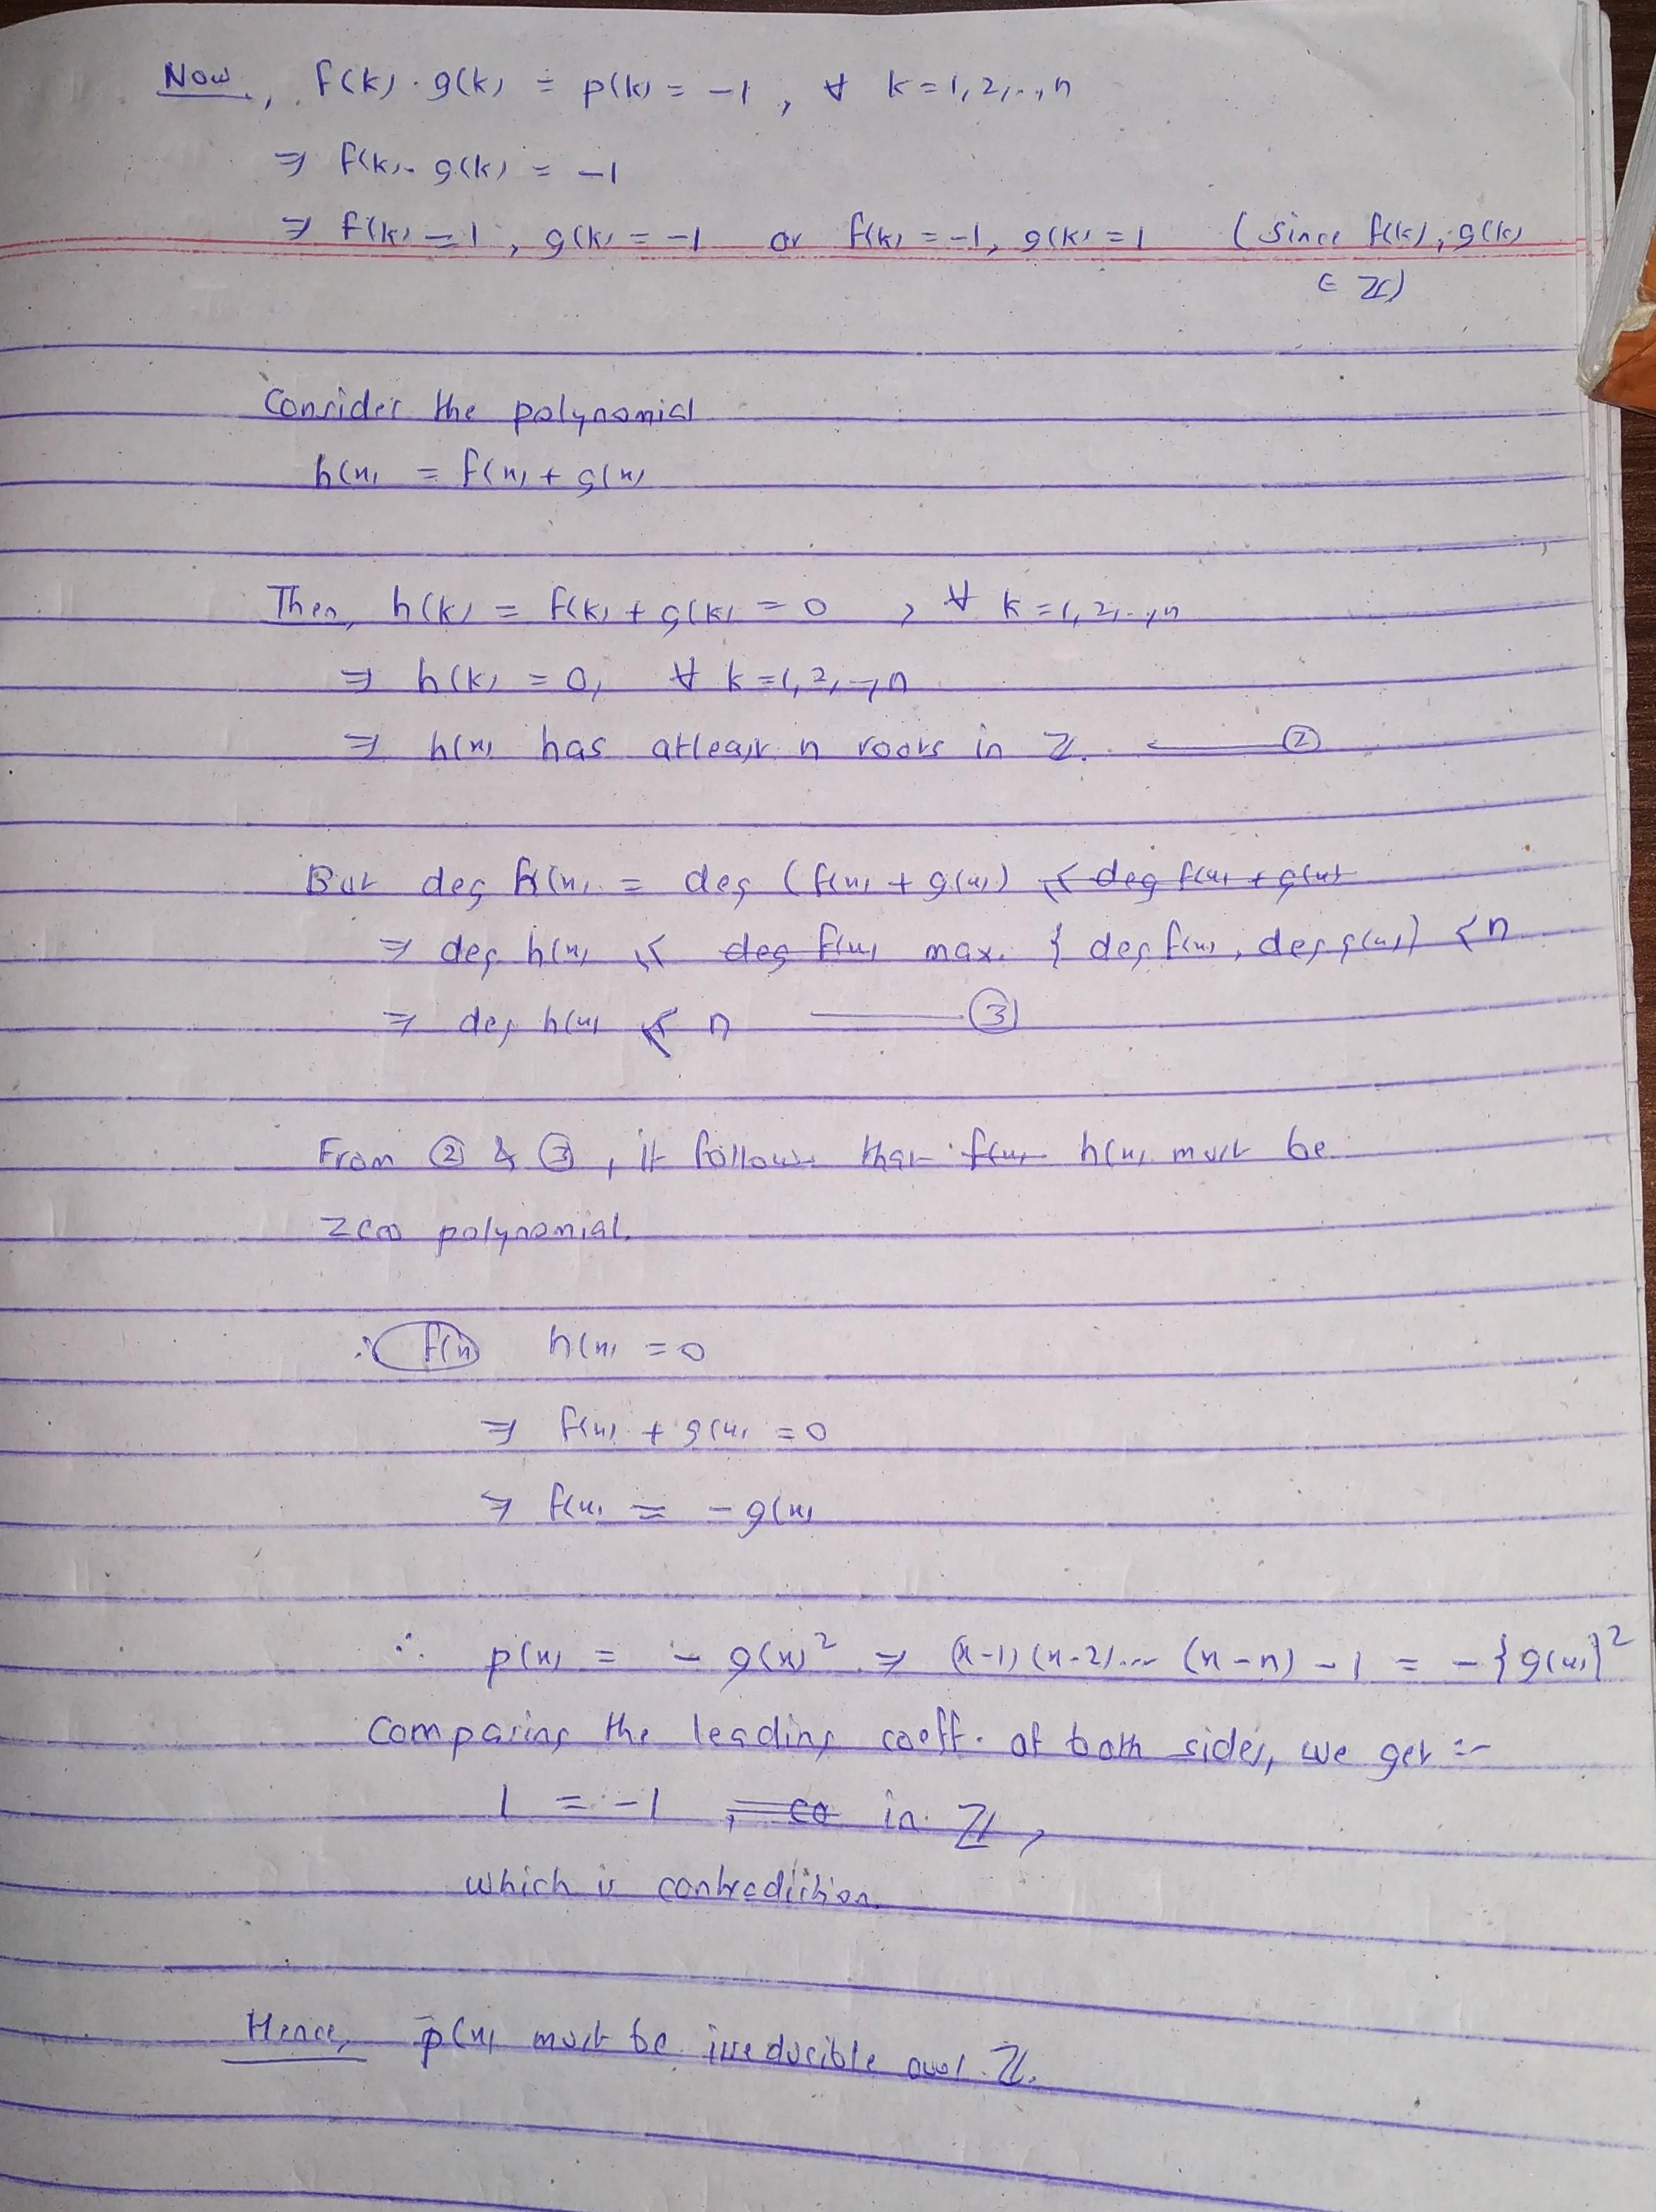 Now, f(k) . g(k) = p(k) = -1 , ∀ k = 1, 2, .., n
⇒ f(k) . g(k) = -1
⇒ f(k) = 1 , g(k) = -1 or f(k) = -1, g(k) = 1 (since f(k), g(k)
∈ ℤ)
Consider the polynomial
h(x) = f(x) + g(x)
Then, h(k) = f(k) + g(k) = 0 , ∀ k = 1, 2, .., n
⇒ h(k) = 0, ∀ k = 1, 2, .., n
⇒ h(x) has atleast n roots in ℤ. ——— ②
But deg h(x) = deg (f(x) + g(x)) ≤ deg f(x) + g(x)
⇒ deg h(x) ≤ deg f(x) max. { deg f(x), deg g(x) } < n
⇒ deg h(x) < n ——— ③
From ② & ③ , it follows that f(x) h(x) must be
zero polynomial.
∴ f(x) h(x) = 0
⇒ f(x) + g(x) = 0
⇒ f(x) = - g(x)
∴ p(x) = - g(x)² ⇒ (x-1) (x-2) ... (x-n) - 1 = - {g(x)}²
Comparing the leading coeff. of both sides, we get :-
1 = -1 , co in ℤ ,
which is contradiction.
Hence, p(x) must be irreducible over ℤ.